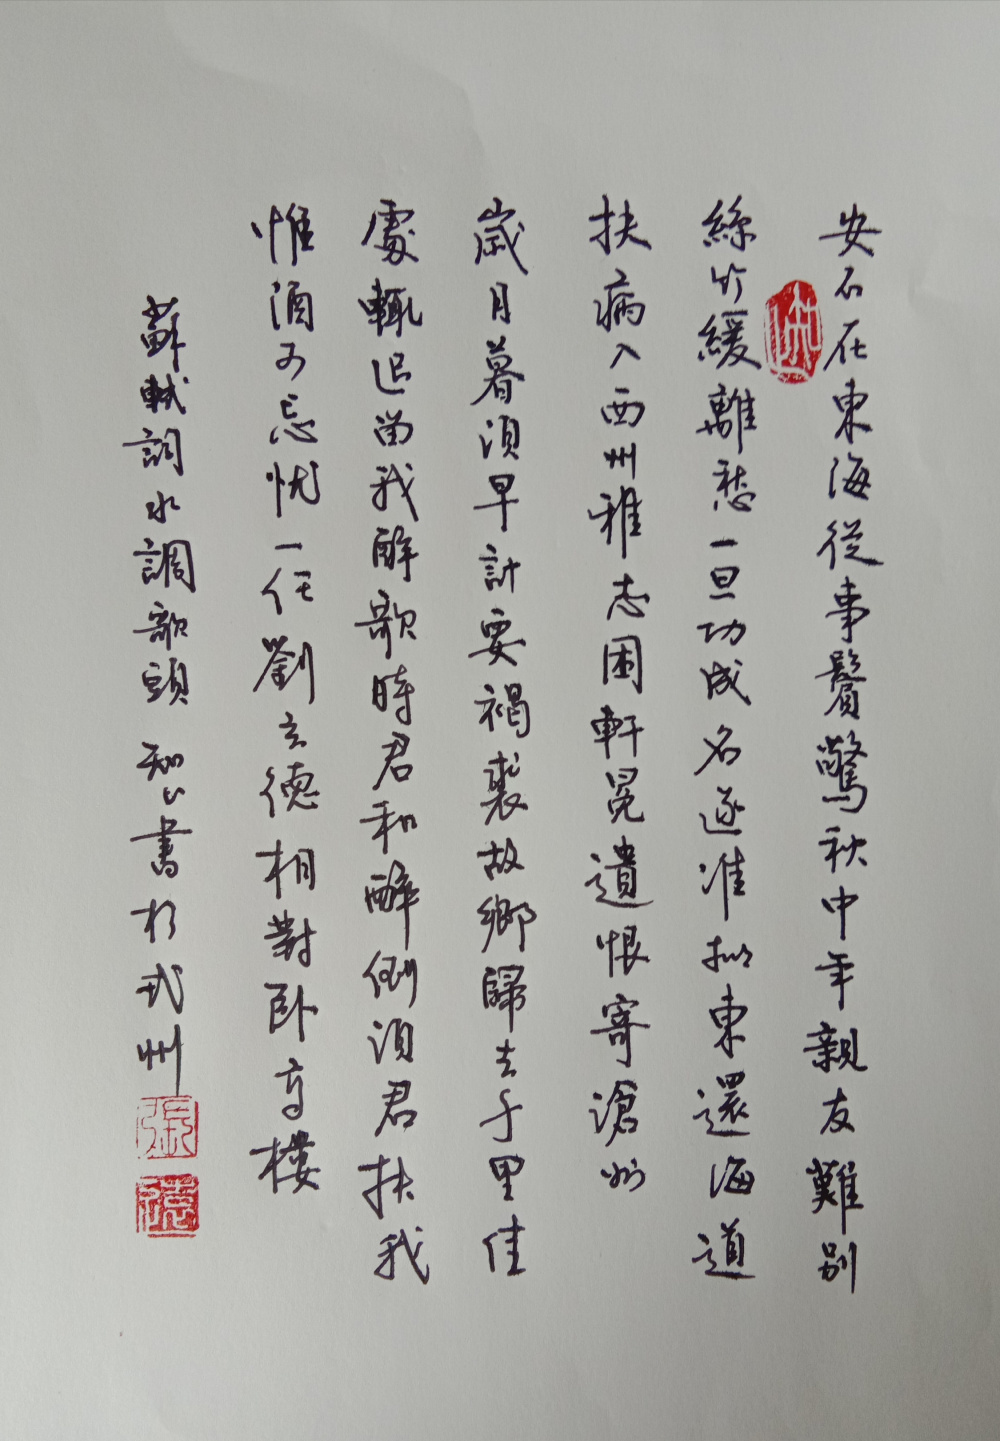 安石在東海從事鬢驚秋中年親友難別
絲竹緩離愁一旦功成名遂准擬東還海道
扶病入西州雅志困軒冕遺恨寄滄洲
歲月暮須早計要褐裘故鄉歸去千里佳
處輒迟留我醉歌時君和醉倒須君扶我
惟酒可忘忧一任劉玄德相對臥高樓
蘇軾詞水調歌頭 智公書於弍州
張
遠